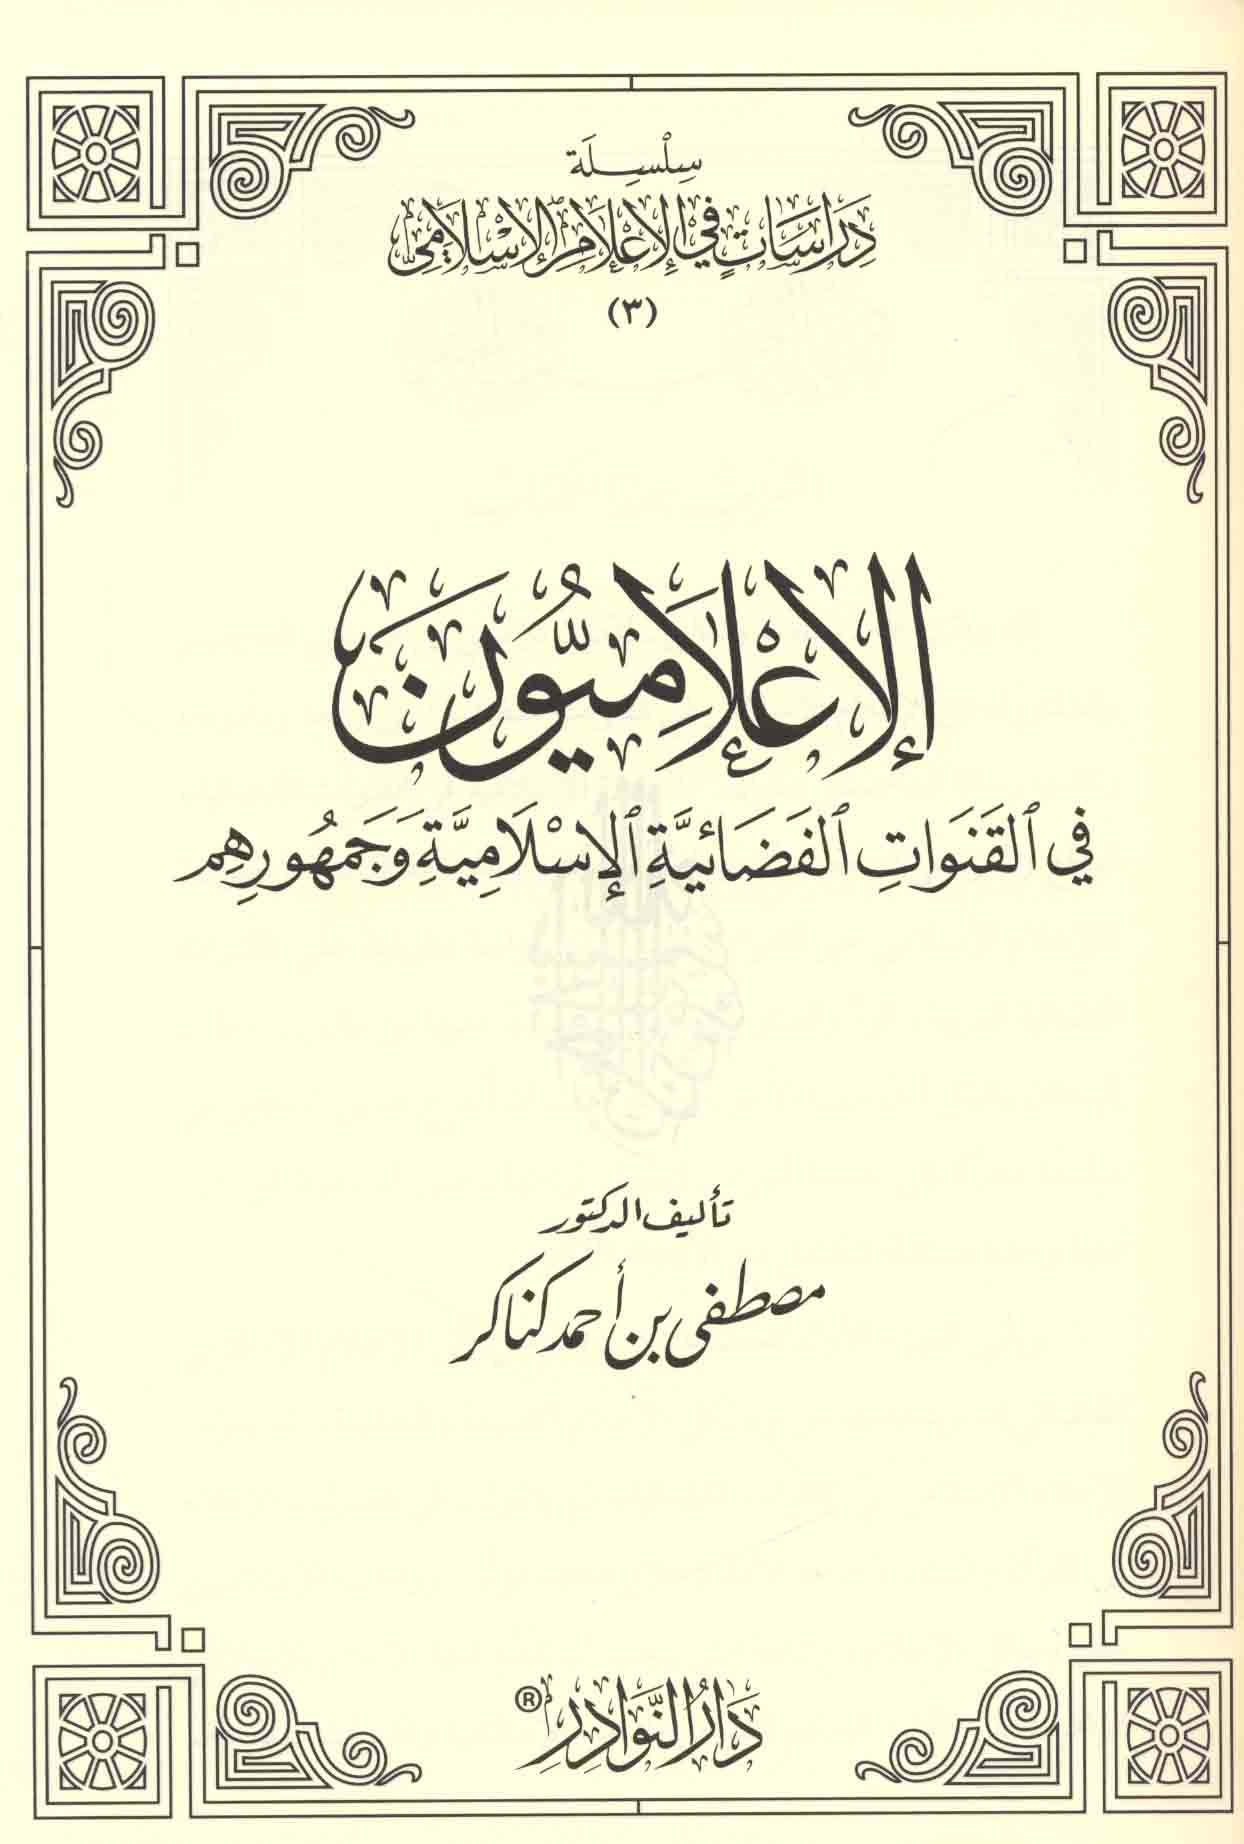 سِلْسِلَة
دِرَاسَاتٍ فِي الإِعْلَامِ الإِسْلَامِيِّ
(٣)
الإِعْلَامِيُّونَ
فِي القَنَوَاتِ الفَضَائِيَّةِ الإِسْلَامِيَّةِ وَجَمْهُورِهِم
تأليف الدكتور
مصطفى بن أحمد كناكر
دَارُ النَّوَادِرِ ®